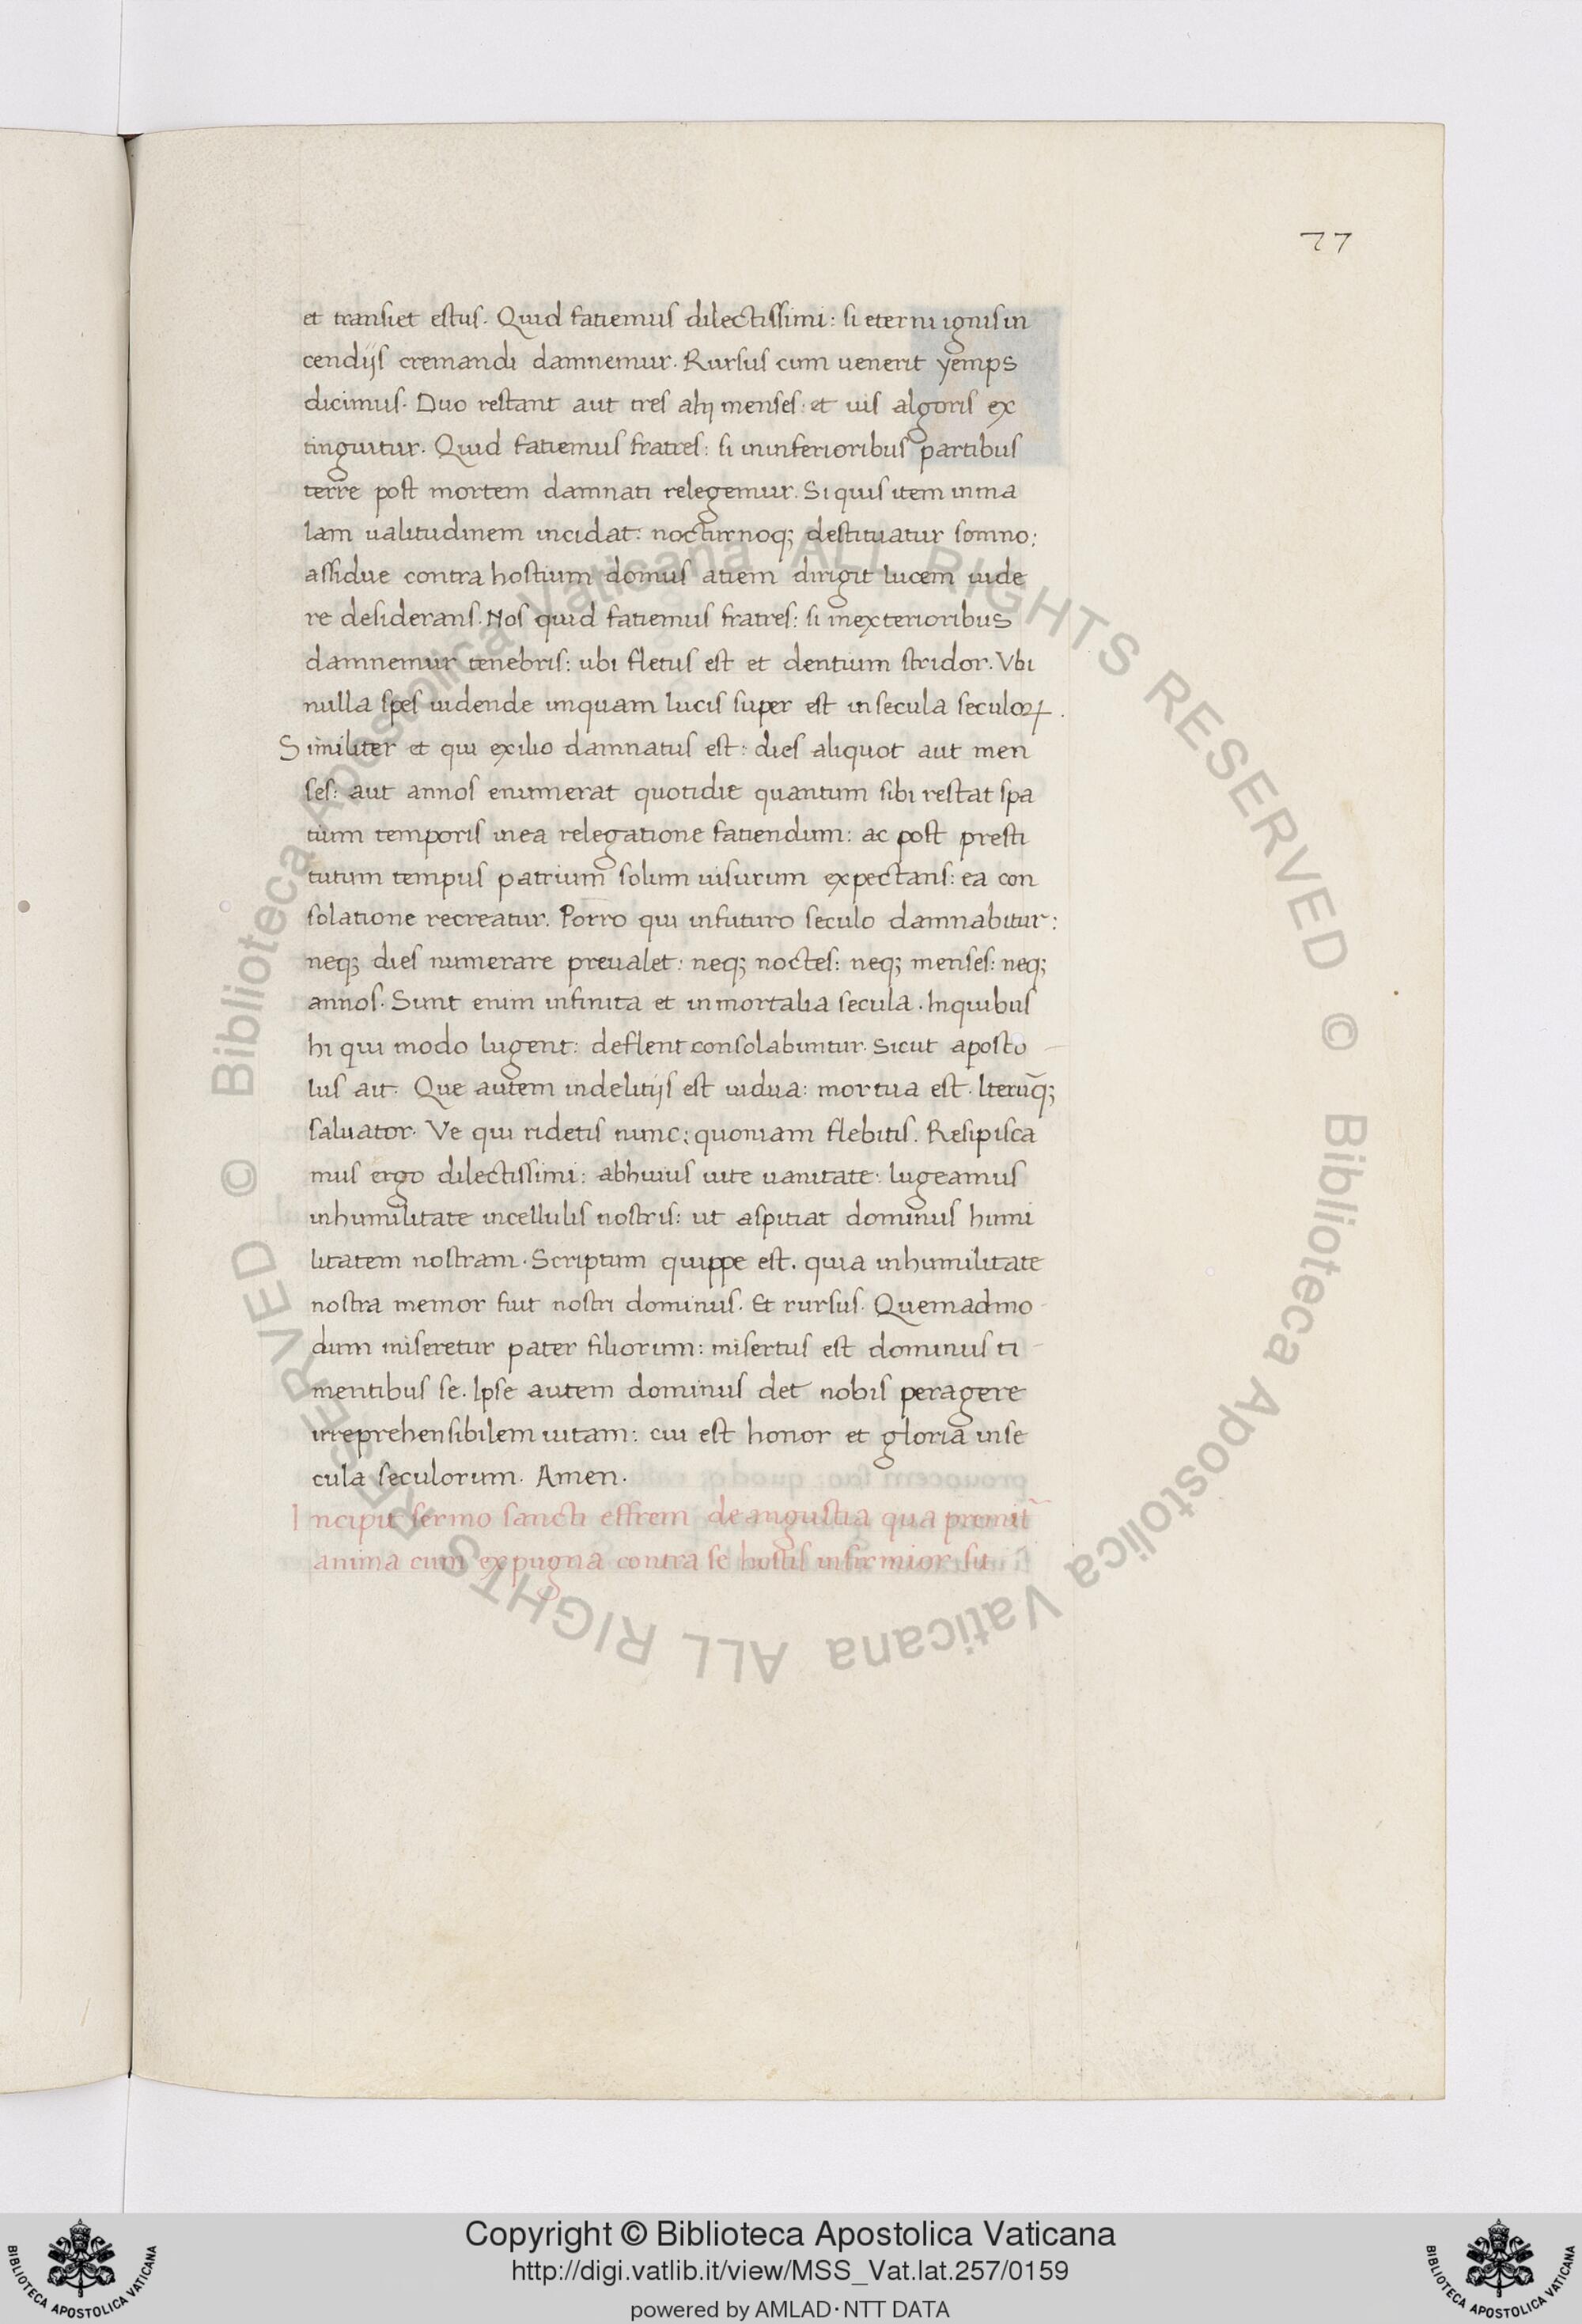 77
et transiet estus. Quid fatiemus dilectissimi: si eterni ignis in
cendijs cremandi damnemur. Rursus cum uenerit yemps
dicimus. Duo restant aut tres alij menses: et uis algoris ex
tinguitur. Quid fatiemus fratres: si in inferioribus partibus
terre post mortem damnati relegemur. Si quis item in ma
lam ualitudinem incidat: nocturnoq; destituatur somno:
assidue contra hostium domus atiem dirigit lucem uide
re desiderans. Nos quid fatiemus fratres: si in exterioribus
damnemur tenebris: ubi fletus est et dentium stridor. Vbi
nulla spes uidende unquam lucis super est in secula seculoꝝ.
Similiter et qui exilio damnatus est: dies aliquot aut men
ses: aut annos enumerat quotidie quantum sibi restat spa
tium temporis in ea relegatione fatiendum: ac post presti
tutum tempus patrium solum uisurum expectans: ea con
solatione recreatur. Porro qui in futuro seculo damnabitur:
neq; dies numerare preualet: neq; noctes: neq; menses: neq;
annos. Sunt enim infinita et inmortalia secula. In quibus
hi qui modo lugent: deflent consolabuntur. Sicut aposto
lus ait. Que autem in delitijs est uidua: mortua est. Iterūq;
saluator. Ve qui ridetis nunc: quoniam flebitis. Resipisca
mus ergo dilectissimi: ab huius uite uanitate: lugeamus
in humilitate in cellulis nostris: ut aspitiat dominus humi
litatem nostram. Scriptum quippe est. quia in humilitate
nostra memor fuit nostri dominus. Et rursus. Quemadmo-
dum miseretur pater filiorum: misertus est dominus ti-
mentibus se. Ipse autem dominus det nobis peragere
irreprehensibilem uitam: cui est honor et gloria in se
cula seculorum. Amen.
Incipit sermo sancti effrem de angustia qua premit̃
anima cum expugna contra se hostis infirmior sit.
© Biblioteca Apostolica Vaticana ALL RIGHTS RESERVED © Biblioteca Apostolica Vaticana ALL RIGHTS RESERVED
Copyright © Biblioteca Apostolica Vaticana
http://digi.vatlib.it/view/MSS_Vat.lat.257/0159
powered by AMLAD·NTT DATA
BIBLIOTECA APOSTOLICA VATICANA
BIBLIOTECA APOSTOLICA VATICANA